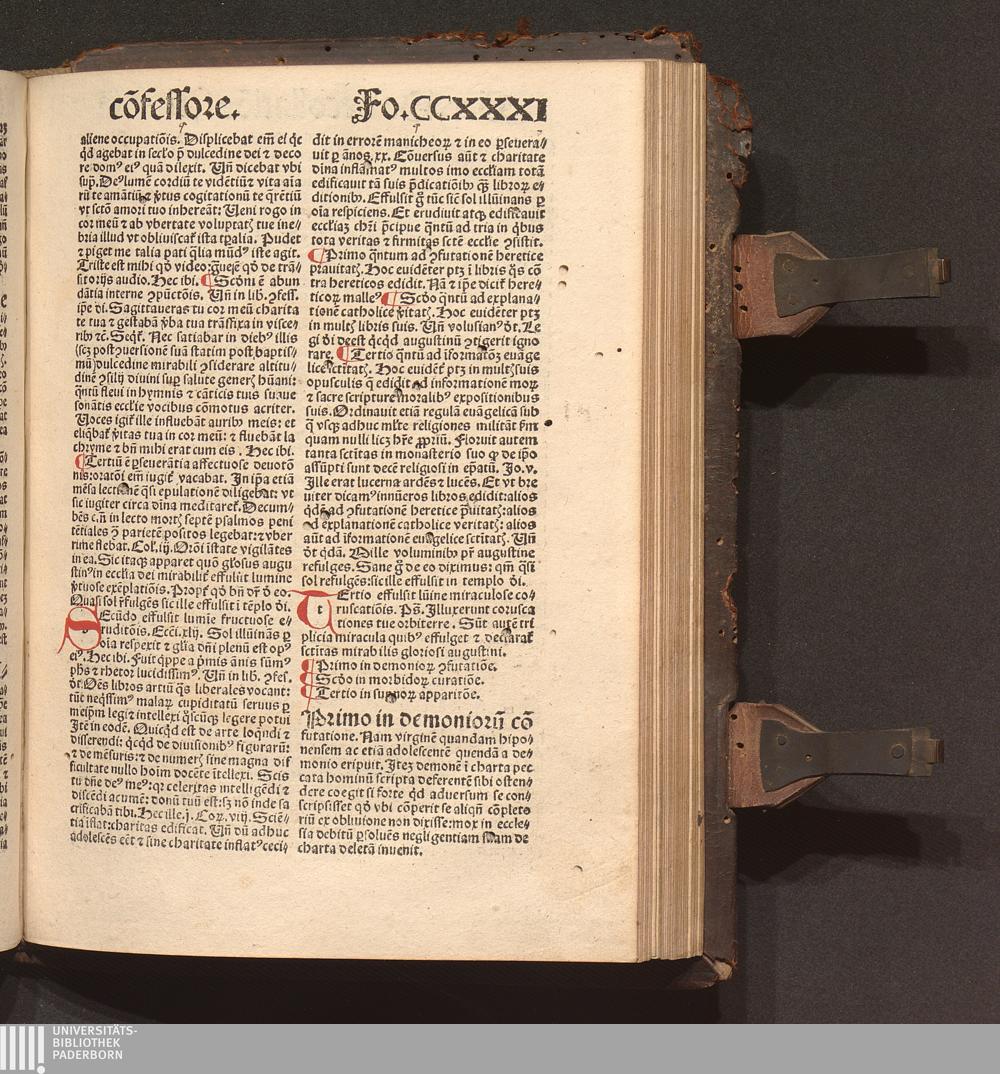 cõfessore.
Fo.CCXXXI
aliene occupatiõis. Displicebat em̃ ei q̃c
q̃d agebat in sec̃lo p̃ dulcedine dei ⁊ deco
re domꝰ eiꝰ quã dilexit. Un̄ dicebat vbi
sup̃. De lumẽ cordiũ te vidẽtiũ ⁊ vita aĩa
rũ te amãtiũ ⁊ ꝟtus cogitationũ te q̃rẽtiũ
vt sctõ amori tuo inhereãt: Ueni rogo in
cor meũ ⁊ ab vbertate voluptatꝭ tue ine⸗
bria illud vt obliuiscar̃ ista tꝑalia. Pudet
⁊ piget me talia pati q̃lia mũdꝰ iste agit.
Triste est mihi qõ video: qõ de trã⸗
sitorijs audio. Hec ibi. Scõni ẽ abun
dãtia interne ꝯpũctõis. Un̄ in lib. ꝯfess.
ip̃e di. Sagittaueras tu cor meũ charita
te tua ⁊ gestabã ꝟba tua trãsfixa in visce⸗
ribꝰ ⁊c̃. Seq̃t̃. Nec satiabar in diebꝰ illis
sꝫ post ꝯuersionẽ suã statim post baptis⸗
mũ dulcedine mirabili ꝯsiderare altitu⸗
dinẽ ꝯsilij diuini suꝑ salute generꝭ hũani:
q̃ntũ fleui in hymnis ⁊ cãticis tuis suaue
sonãtis eccl̃ie vocibus cõmotus acriter.
Uoces igit̃ ille influebãt auribꝰ meis: et
eliq̃bat̃ ꝟitas tua in cor meũ: ⁊ fluebãt la
chryme ⁊ bñ mihi erat cum eis. Hec ibi.
Tertiũ ẽ ꝑseuerãtia affectuose deuotõ
nis: oratõi em̃ iugit̃ vacabat. In ip̃a etiã
mẽsa lectionẽ q̃si epulationẽ diligebat: vt
sic iugiter circa diña meditaret̃. Decum⸗
bẽs c.n̄ in lecto mortꝭ septẽ psalmos peni
tẽtiales ꝯ parietẽ positos legebat: ⁊ vber
rime flebat. Col̃. iij. Or̃oi istate vigilãtes
in ea. Sic itaqꝫ apparet quõ gl̃osus augu
stinꝰ in eccl̃ia dei mirabilit̃ effulsit lumine
ꝟtuose exẽplatiõis. Propt̃ qõ bñ dr̃ ð eo.
Quasi sol r̃fulgẽs sic ille effulsit i tẽplo ði.
Secũdo effulsit lumiẽ fructuose e⸗
ruditõis. Eccĩ. xlij. Sol illũinãs ꝑ
oĩa respexit ⁊ gl̃ia dñi plenũ est opꝰ
eiꝰ. Hec ibi. Fuit q̃ppe a p̃mis ãnis sũmꝰ
ph̃s ⁊ rhetor lucidissimꝰ. Un̄ in lib. ꝯfes.
ðt. Oẽs libros artiũ q̃s liberales vocant:
tũc neq̃ssimꝰ malaꝝ cupiditatũ seruus ꝑ
meip̃m legi ⁊ intellexi q̃scũqꝫ legere potui
Itẽ in eodẽ. Quicq̃d est de arte loq̃ndi ⁊
disserendi: q̃cq̃d de diuisionibꝰ figurarũ:
⁊ de mẽsuris: ⁊ de numerꝭ sine magna dif
ficultate nullo hoĩm docẽte ĩtellexi. Scis
tu dñe deꝰ meꝰ: qꝛ celeritas intelligẽdi ⁊
discẽdi acumẽ: donũ tuũ est: sꝫ nõ inde sa
crificabã tibi. Hec ille. j. Coꝝ. viij. Sciẽ⸗
tia ĩflat: charitas edificat. Un̄ dũ adhuc
adolescẽs eẽt ⁊ sine charitate inflatꝰ ceci⸗
dit in errorẽ manicheoꝝ ⁊ in eo ꝑseuera⸗
uit ꝑ ãnos. xx. Cõuersus aũt ⁊ charitate
diña inflãmatꝰ multos imo eccl̃iam totã
edificauit tã suis p̃dicatiõibꝰ q̃ꝫ libroꝝ e⸗
ditionibꝰ. Effulsit g̃ tũc sic̃ sol illũinans ꝑ
oĩa respiciens. Et erudiuit atqꝫ edificauit
eccl̃iaꝫ chr̃i p̃cipue q̃ntũ ad tria in q̃bus
tota veritas ⁊ firmitas sctẽ eccl̃ie ꝯsistit.
Primo q̃ntum ad ꝯfutationẽ heretice
prauitatꝭ. Hoc euidẽter ptꝫ ĩ libris q̃s cõ
tra hereticos edidit. Nã ⁊ ip̃e dicit̃ here⸗
ticoꝝ malleꝰ Scðo q̃ntũ ad explana⸗
tionẽ catholice ꝟitatꝭ. Hoc euidẽter ptꝫ
in multꝭ libris suis. Un̄ volusianꝰ ðt. Le
gi ði deest q̃cq̃d augustinũ ꝯtigerit igno
rare. Tertio q̃ntũ ad ĩformatõꝫ euãge
lice sctĩtatꝭ. Hoc euidẽt̃ ptꝫ in multꝭ suis
opusculis q̃ edidit ad informationẽ moꝝ
⁊ sacre scripture moralibꝰ expositionibus
suis. Ordinauit etiã regulã euãgelicã sub
q̃ vsqꝫ adhuc ml̃te religiones militãt fm̃
quam nulli licꝫ hr̃e ꝓpriũ. Floruit autem
tanta sctĩtas in monasterio suo ꝙ de ip̃o
assũpti sunt decẽ religiosi in ep̃atũ. Jo. v.
Ille erat lucerna ardẽs ⁊ lucẽs. Et vt bre
uiter dicamꝰ innũeros libros edidit: alios
q̃dẽ ad ꝯfutationẽ heretice p̃uitatꝭ: alios
ad explanationẽ catholice veritatꝭ: alios
aũt ad ĩformationẽ euãgelice sctĩtatꝭ. Un̄
ðt q̃dã. Mille voluminibꝰ pr̃ augustine
refulges. Sane g̃ de eo diximus: qm̃ q̃si
sol refulgẽs: sic ille effulsit in templo ði.
Tertio effulsit lũine miraculose co⸗
ruscatiõis. Ps̃. Illuxerunt corusca
tiones tue orbi terre. Sũt autẽ tri
plicia miracula quibꝰ effulget ⁊ declarat̃
sctĩtas mirabilis gloriosi augustini.
Primo in demonioꝝ ꝯfutatiõe.
Scðo in morbidoꝝ curatiõe.
Tertio in suapoꝝ apparitõe.
Primo in demoniorũ cõ
futatione. Nam virginẽ quandam hipo⸗
nensem ac etiã adolescentẽ quendã a de⸗
monio eripuit. Iteꝫ demonẽ ĩ charta pec
cata hominũ scripta deferentẽ sibi osten⸗
dere coegit si forte q̃d aduersum se con⸗
scripsisset qõ vbi cõperit se aliqñ cõpleto
riũ ex obliuione non dixisse: mox in eccle⸗
sia debitũ ꝑsoluẽs negligentiam suam de
charta deletã inuenit.
UNIVERSITÄTS-
BIBLIOTHEK
PADERBORN